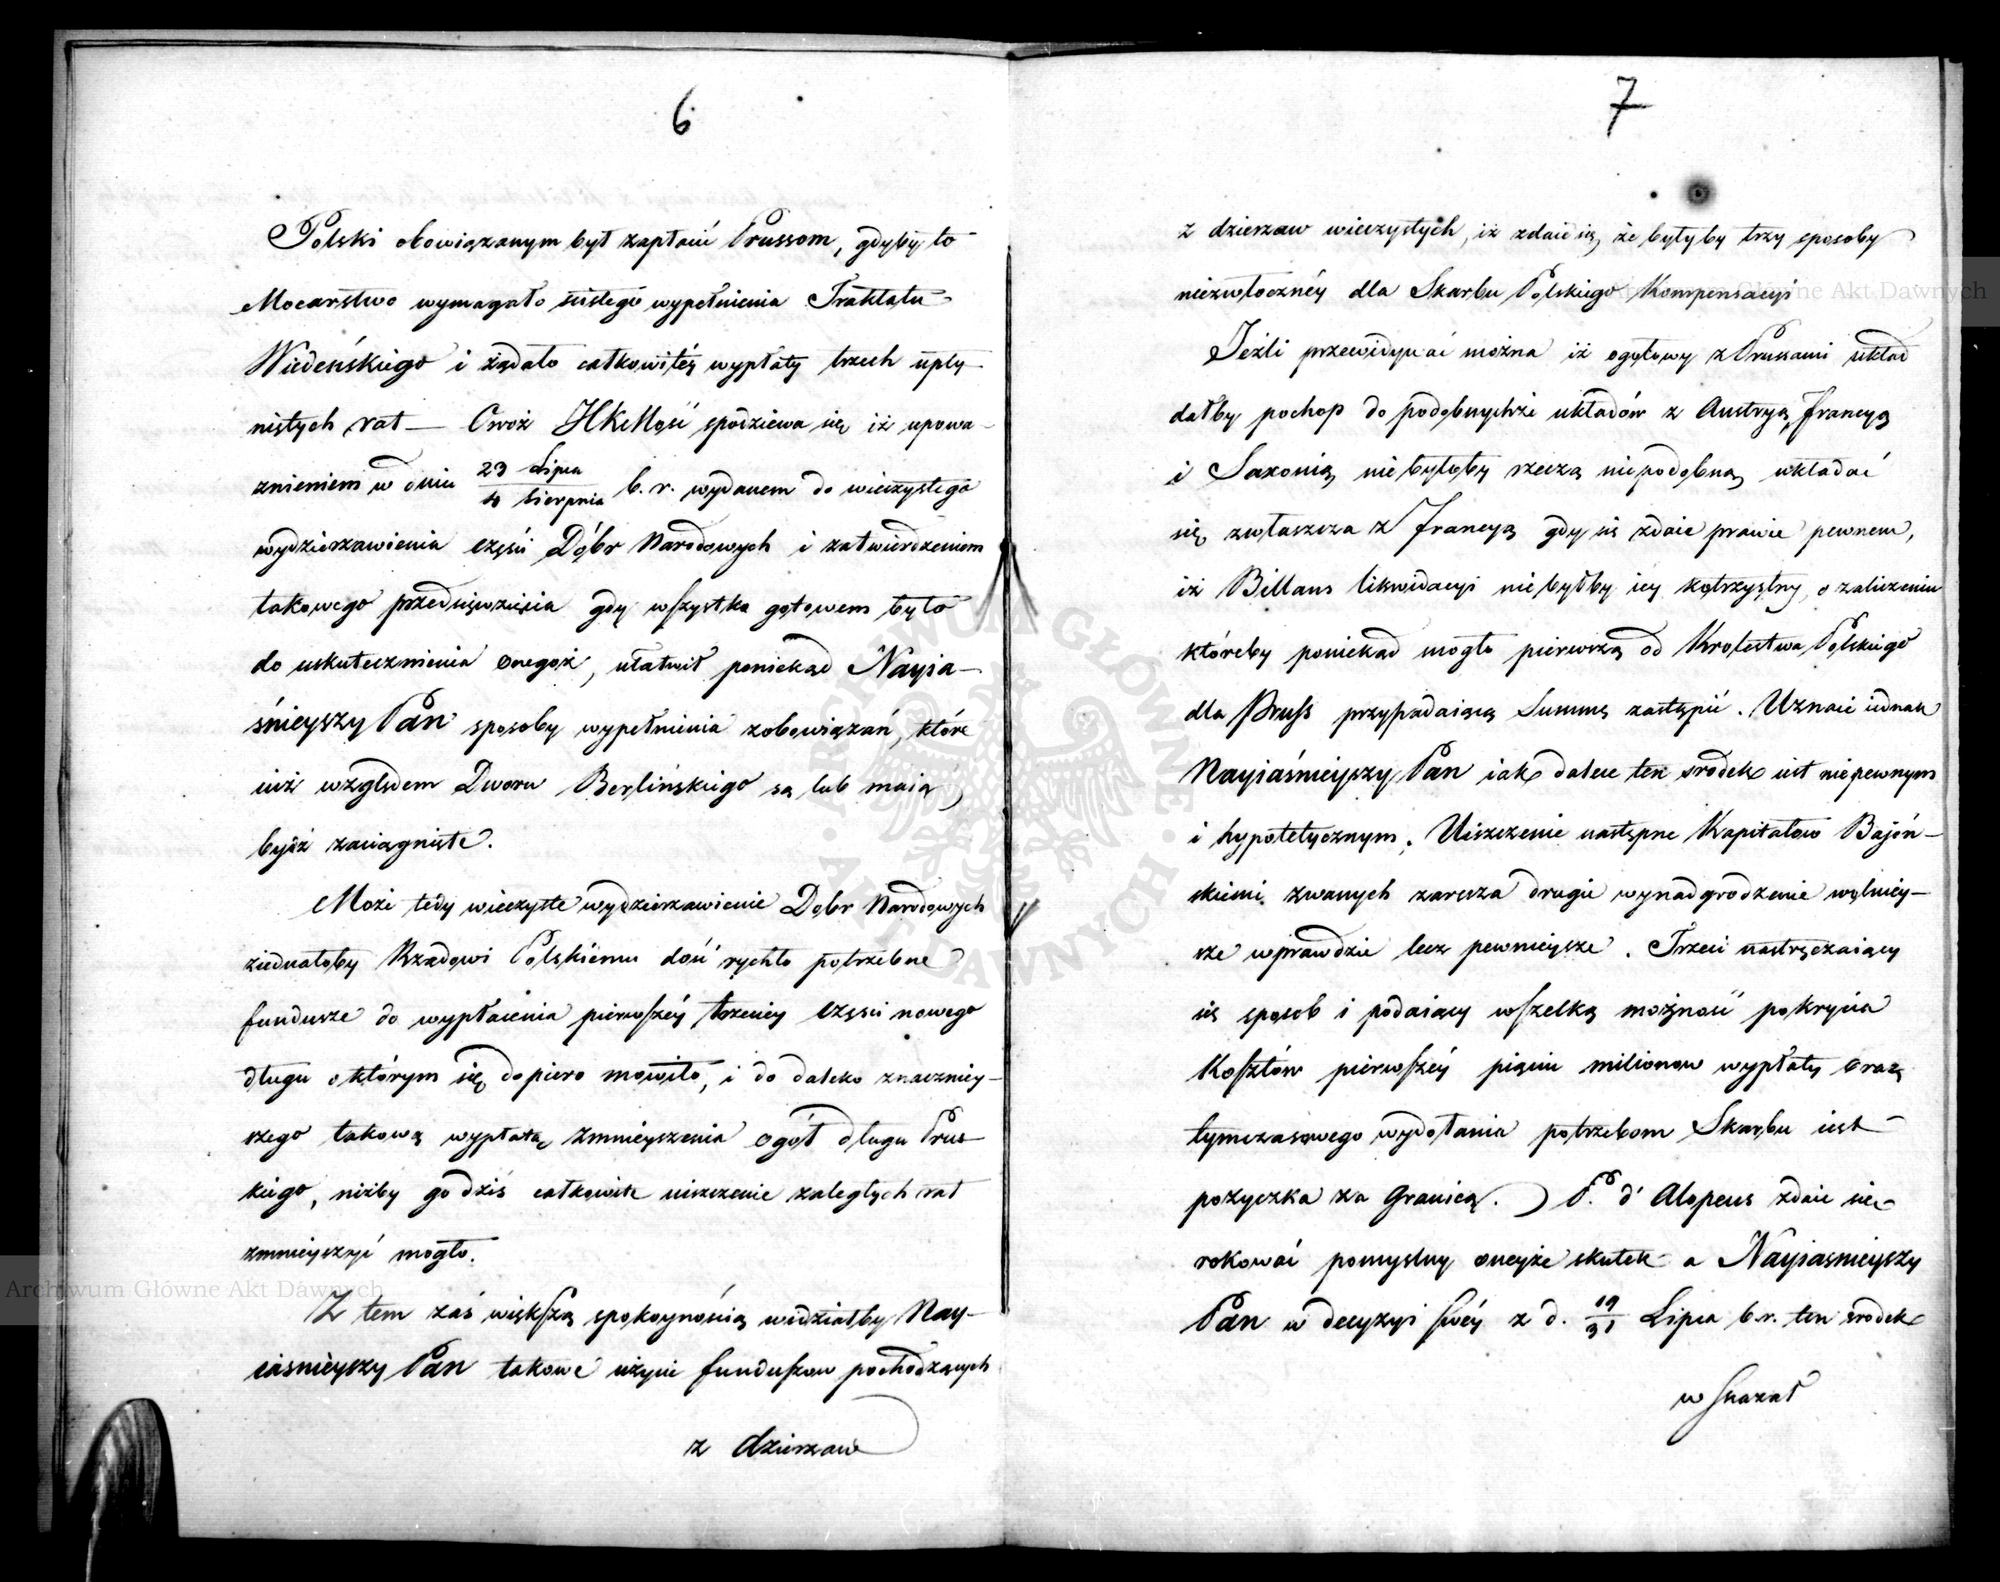 6
Polski obowiązanym był zapłacić Prussom, gdyby to
Mocarstwo wymagało ścisłego wypełnienia Traktatu
Wiedeńskiego i żądało całkowitéy wypłaty trzech upły-
nistych rat — Owoż JKMość spodziewa się iż upowa-
żnieniem w dniu 23 Lipca / 4 Sierpnia b.r. wydanem do wieczystego
wydzierzawienia części Dóbr Narodowych i zatwierdzeniem
takowego przedsięwzięcia gdy wszystko gotowem było
do uskutecznienia onegoż, ułatwił poniekąd Nayia-
śnieyszy Pan sposoby wypełnienia zobowiązań, które
iuż względem Dworu Berlińskiego są lub maią
bydź zaciągnięte.
Może tedy wieczyste wydzierzawienie Dobr Narodowych
ziednałoby Rządowi Polskiemu dość rychło potrzebne
fundusze do wypłacenia pierwszéy trzeciey części nowego
długu o którym się dopiero mówiło, i do daleko znaczniey-
szego takową wypłatą zmnieyszenia ogół długu Prus-
kiego, niżby go dziś całkowite uiszczenie zaległych rat
zmnieyszyć mogło.
Z tem zaś większą spokoynością widziałby Nay-
iaśnieyszy Pan takowe użycie funduszow pochodzących
z dzierzaw
7
z dzierzaw wieczystych, iż zdaie się, że byłyby trzy sposoby
niezwłocznéy dla Skarbu Polskiego Kompensacyi
Jeźli przewidywać można iż ogółowy z Prusami układ
dałby pochop do podobnychże układów z Austryą, Francyą
i Saxonią, nie byłoby rzeczą niepodobną układać
się zwłaszcza z Francyą gdy się zdaie prawie pewnem,
iż Billans likwidacyi nie byłby iey korzystny, o zaliczeniu
któreby poniekąd mogło pierwszą od Krolestwa Polskiego
dla Pruss przypadaiącą Summę zastąpić. Uznaie iednak
Nayiaśnieyszy Pan iak dalece ten srodek iest niepewnym
i hypotetycznym. Uiszczenie następne Kapitałow Bajoń-
skiemi zwanych zarcza drugie wynadgrodzenie wolniey-
sze wprawdzie lecz pewnieysze. Trzeci nastręczaiący
się sposob i podaiący wszelką możność pokrycia
Kosztów pierwszéy pięciu milionow wypłaty oraz
tymczasowego wydołania potrzebom Skarbu iest
pożyczka za Granicą. P. d'Alopeus zdaie się
rokować pomyslny oneyże skutek a Nayiasnieyszy
Pan w decyzyi swéy z d. 19/31 Lipca b.r. ten srodek
wskazał
Archiwum Główne Akt Dawnych
Archiwum Główne Akt Dawnych
ARCHIWUM GŁÓWNE AKT DAWNYCH